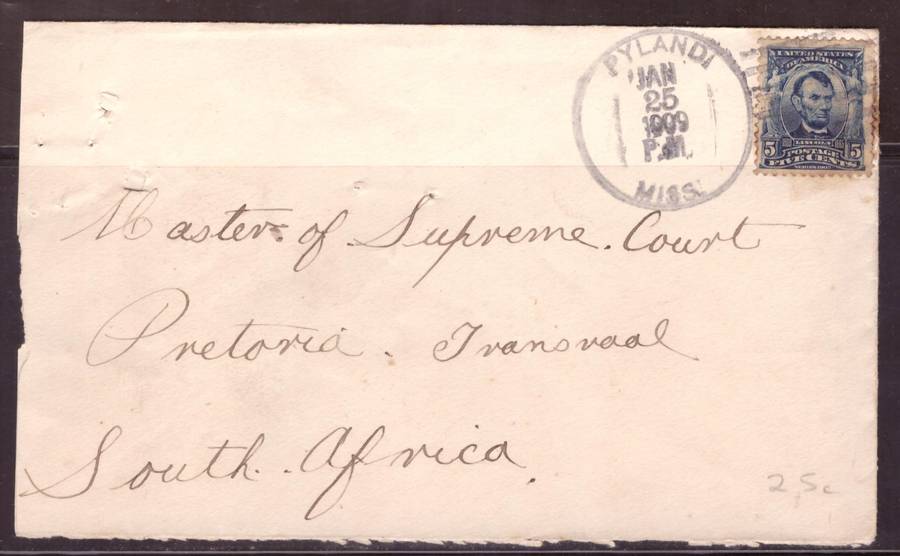 PYLAND
JAN
25
1909
P.M.
MISS.
UNITED STATES
OF AMERICA
5 LINCOLN 5
POSTAGE
FIVE CENTS
Master of Supreme Court
Pretoria. Transvaal
South Africa.